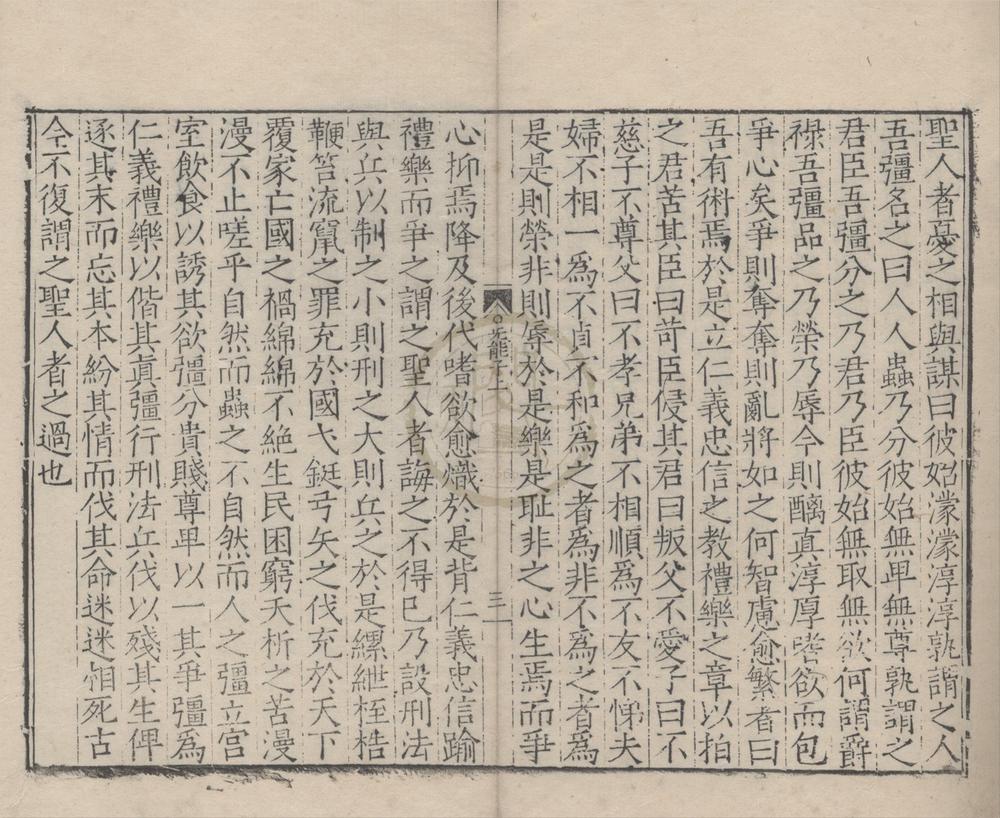 聖人者憂之相與謀曰彼始濛濛淳淳孰謂之人
吾彊名之曰人人蟲乃分彼始無卑無尊孰謂之
君臣吾彊分之乃君乃臣彼始無取無欲何謂爵
祿吾彊品之乃榮乃辱今則醨真淳厚嗜欲而包
爭心矣爭則奪奪則亂將如之何智慮愈繁者曰
吾有術焉於是立仁義忠信之教禮樂之章以拍
之君苦其臣曰苛臣侵其君曰叛父不愛子曰不
慈子不尊父曰不孝兄弟不相順爲不友不悌夫
婦不相一爲不貞不和爲之者爲非不爲之者爲
是是則榮非則辱於是樂是耻非之心生焉而爭
无能子上
三
心抑焉降及後代嗜欲愈熾於是背仁義忠信踰
禮樂而爭之謂之聖人者誨之不得已乃設刑法
與兵以制之小則刑之大則兵之於是縲紲桎梏
鞭笞流竄之罪充於國戈鋌弓矢之伐充於天下
覆家亡國之禍綿綿不絶生民困窮夭析之苦漫
漫不止嗟乎自然而蟲之不自然而人之彊立宮
室飲食以誘其欲彊分貴賤尊卑以一其爭彊爲
仁義禮樂以偕其真彊行刑法兵伐以殘其生俾
逐其末而忘其本紛其情而伐其命迷迷相死古
今不復謂之聖人者之過也